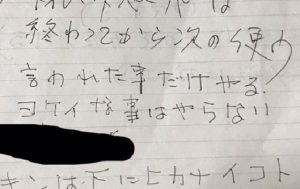 終わってから次の使う
言われた事だけやる.
ヨケイな事はやらない
キンは下にヒカナイコト